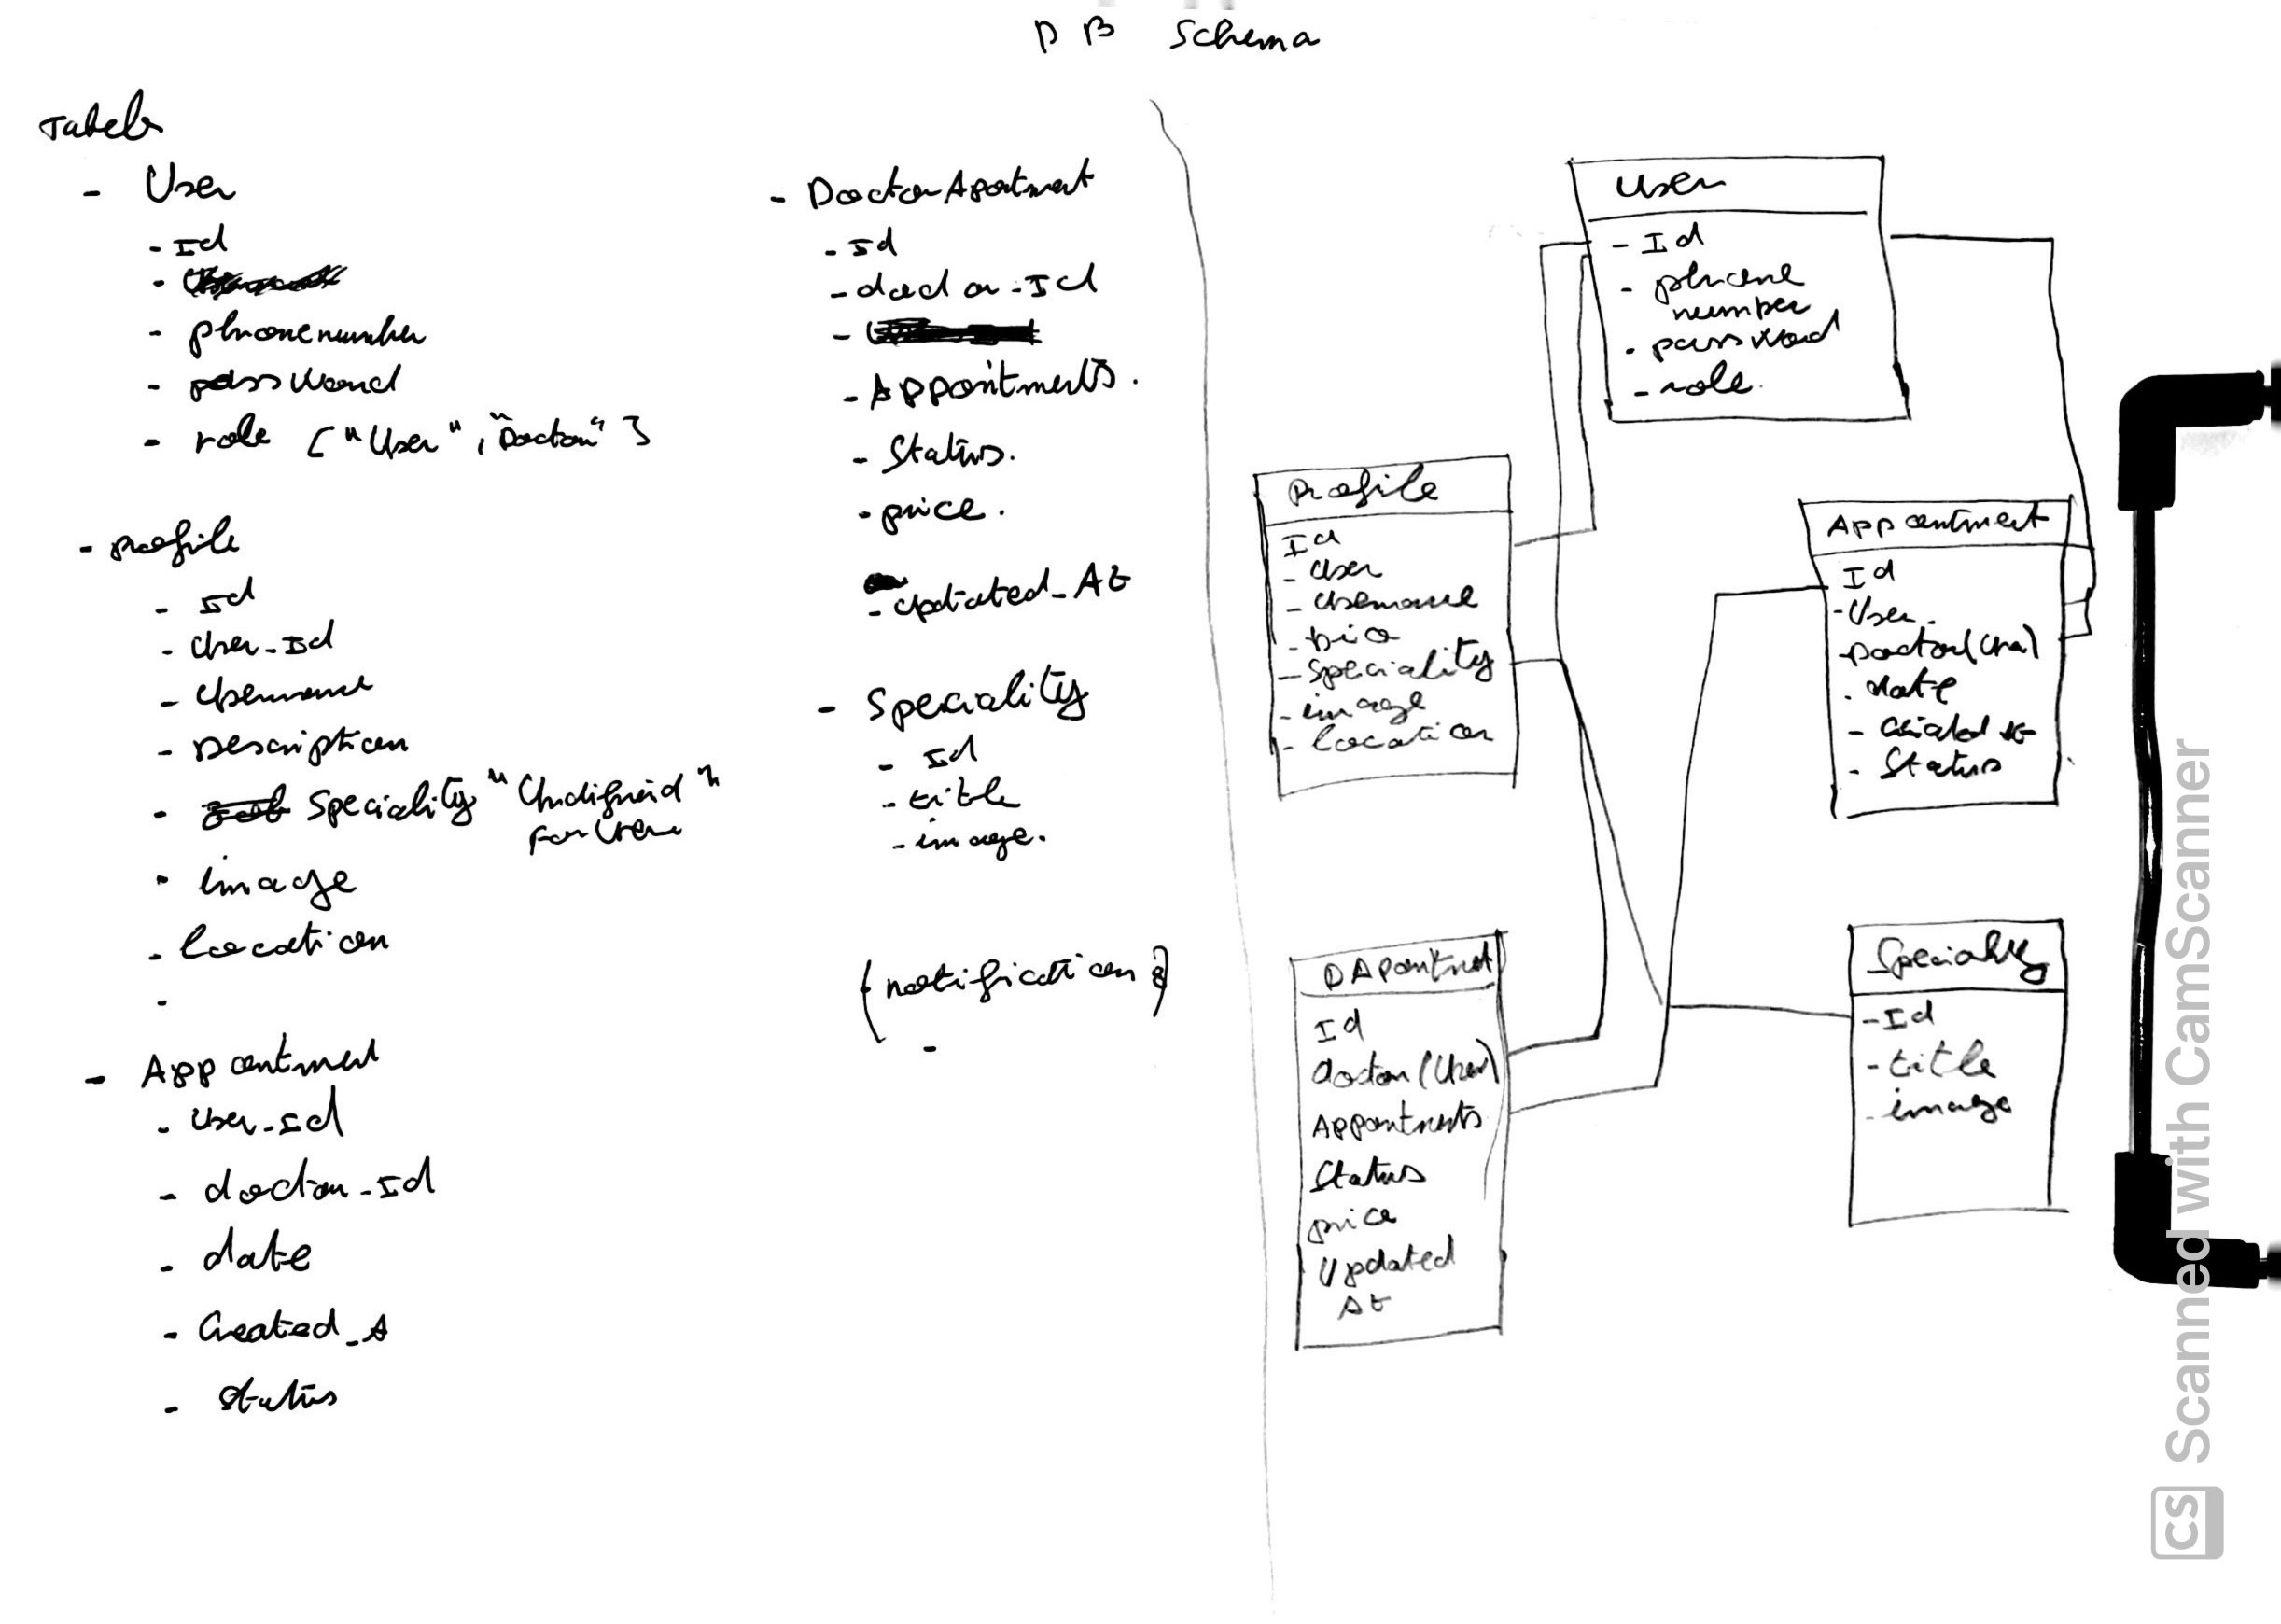 DB Schema
Tabels
- User
- Id
- phonenumber
- password
- role ["User", "Doctor"]
- profile
- Id
- User_Id
- Username
- Description
- Speciality "Undifined"
For User
- image
- location
-
- Appointment
- User_Id
- doctor_Id
- date
- Created_A
- Status
- Doctor Apointment
- Id
- doctor_Id
- Appointments.
- Status.
- price.
- Updated_At
- Speciality
- Id
- title
- image.
(notification)
-
User
- Id
- phone
number
- password
- role.
Profile
Id
- User
- Username
- bio
- Speciality
- image
- location
Appointment
Id
- User.
- Doctor(User)
- date
- Created At
- Status
DApointment
Id
doctor(User)
Appointments
Status
price
Updated
At
Speciality
- Id
- title
- image
CS Scanned with CamScanner